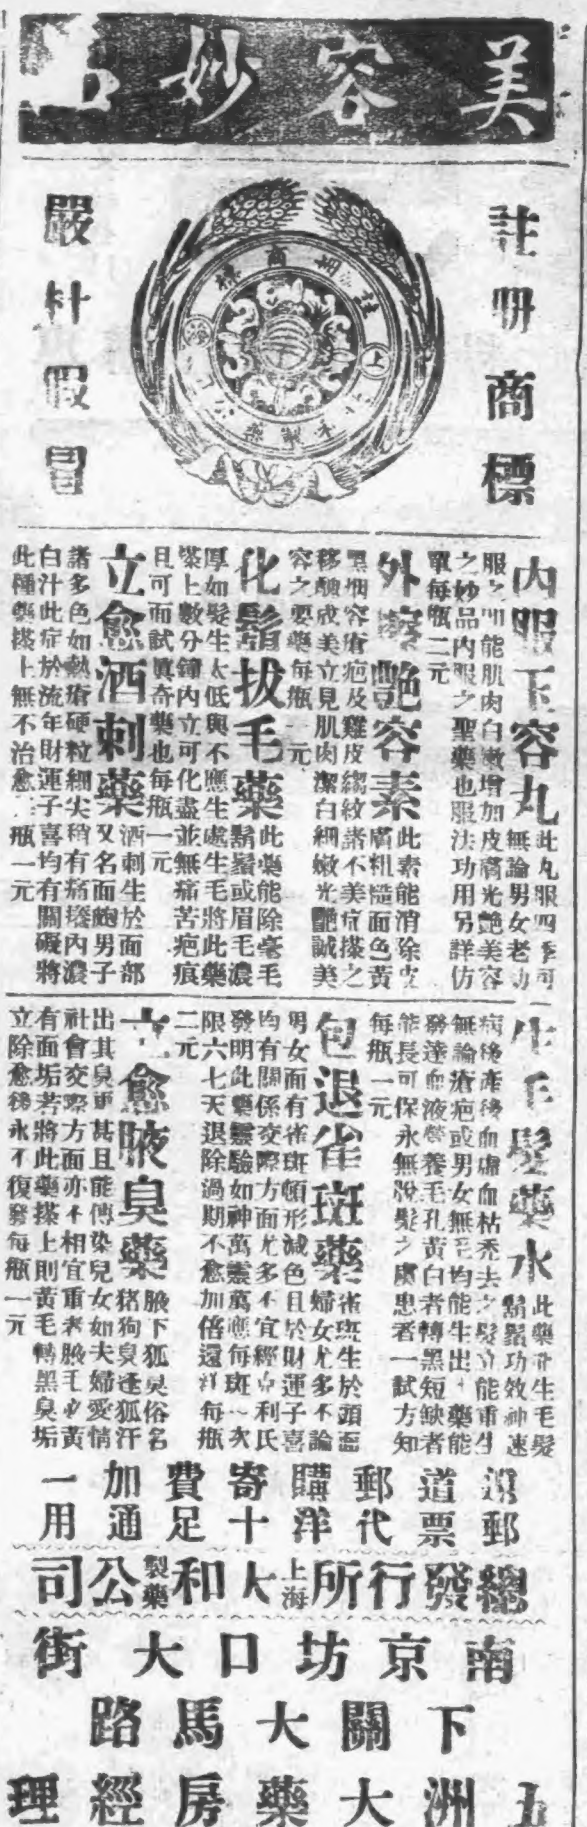 美容妙品
註冊商標
嚴杜假冒
註冊商標
上海
內服玉容丸
此丸服四季可
無論男女老幼
服之即能肌肉白嫩增加皮膚光艷美容
之妙品內服之聖藥也服法功用另詳仿
單每瓶二元
外擦艷容素
此素能消除皮
膚粗糙面色黃
黑容瘡疤及雞皮縐紋諸不美症搽之
移醜成美立見肌肉潔白細嫩光艷誠美
容之要藥每瓶一元
化鬚拔毛藥
此藥能除毫毛
鬍鬚或眉毛濃
厚如髮生太低與不應生處生毛將此藥
搽上數分鐘內立可化盡並無痛苦疤痕
且可面試眞奇藥也每瓶一元
立愈酒刺藥
酒刺生於面部
又名面皰男子
諸多色如熱瘡硬粒細尖稍有痛癢內濃
白汁此症於流年財運子喜均有關礙將
此種藥搽上無不治愈瓶一元
生毛髮藥水
此藥生毛髮
鬍鬚功效神速
病後產後血虛血枯禿去之髮立能重生
無論瘡疤或男女無毛均能生出藥能
發達血液營養毛孔黃白者轉黑短缺者
能長可保永無脫髮之虞患者一試方知
每瓶一元
包退雀斑藥
雀斑生於頭面
婦女尤多不論
男女面有雀斑頓形減色且於財運子喜
均有關係交際方面尤多不宜經利氏
發明此藥靈驗如神萬靈萬應每斑一次
限六七天退除過期不愈加倍還洋每瓶
二元
立愈腋臭藥
腋下狐臭俗名
猪狗臭逢狐汗
出其臭更甚且能傳染兒女如夫婦愛情
社會交際方面亦不相宜重者腋毛必黃
有面垢若將此藥搽上則黃毛轉黑臭垢
立除愈後永不復發每瓶一元
遠道郵購寄費加一
郵票代洋十足通用
總發行所上海大和製藥公司
南京坊口大街
下關大馬路
五洲大藥房經理